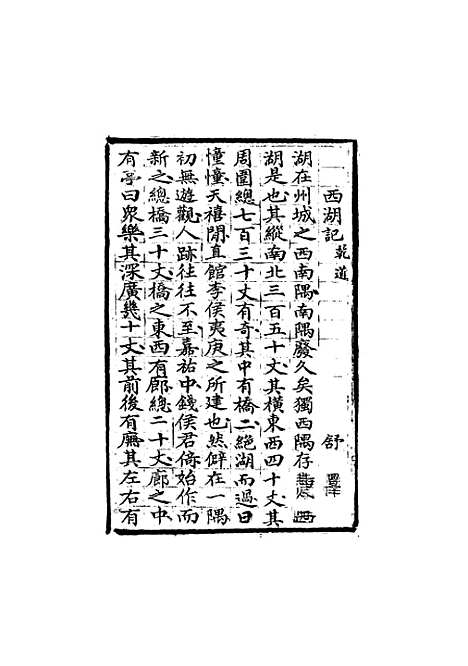 西湖記乾道 舒亶
湖在州城之西南隅南隅廢久矣獨西隅存焉今西
湖是也其縱南北三百五十丈其橫東西四十丈其
周圍總七百三十丈有奇其中有橋二絕湖而過曰
憧憧天禧間直館李侯夷庚之所建也然僻在一隅
初無遊觀人跡往往不至嘉祐中錢侯君倚始作而
新之總橋三十丈橋之東西有廊總二十丈廊之中
有亭曰衆樂其深廣幾十丈其前後有廡其左右有